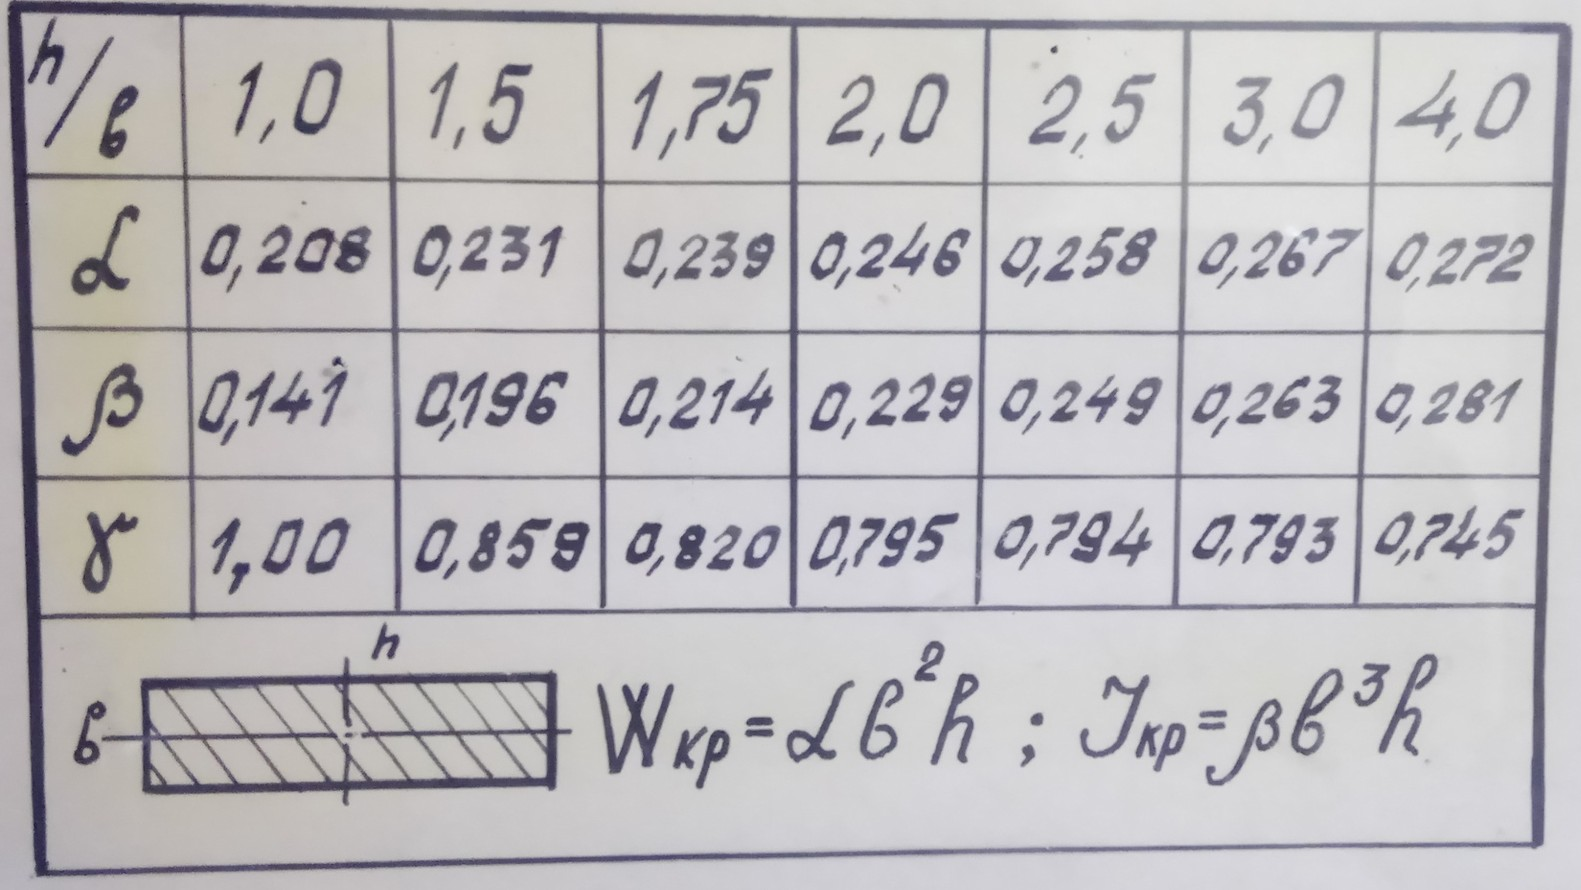 h/в 1,0 1,5 1,75 2,0 2,5 3,0 4,0
α 0,208 0,231 0,239 0,246 0,258 0,267 0,272
β 0,141 0,196 0,214 0,229 0,249 0,263 0,281
γ 1,00 0,859 0,820 0,795 0,794 0,793 0,745
h
в
Wкр=αв²h ; Jкр=βв³h